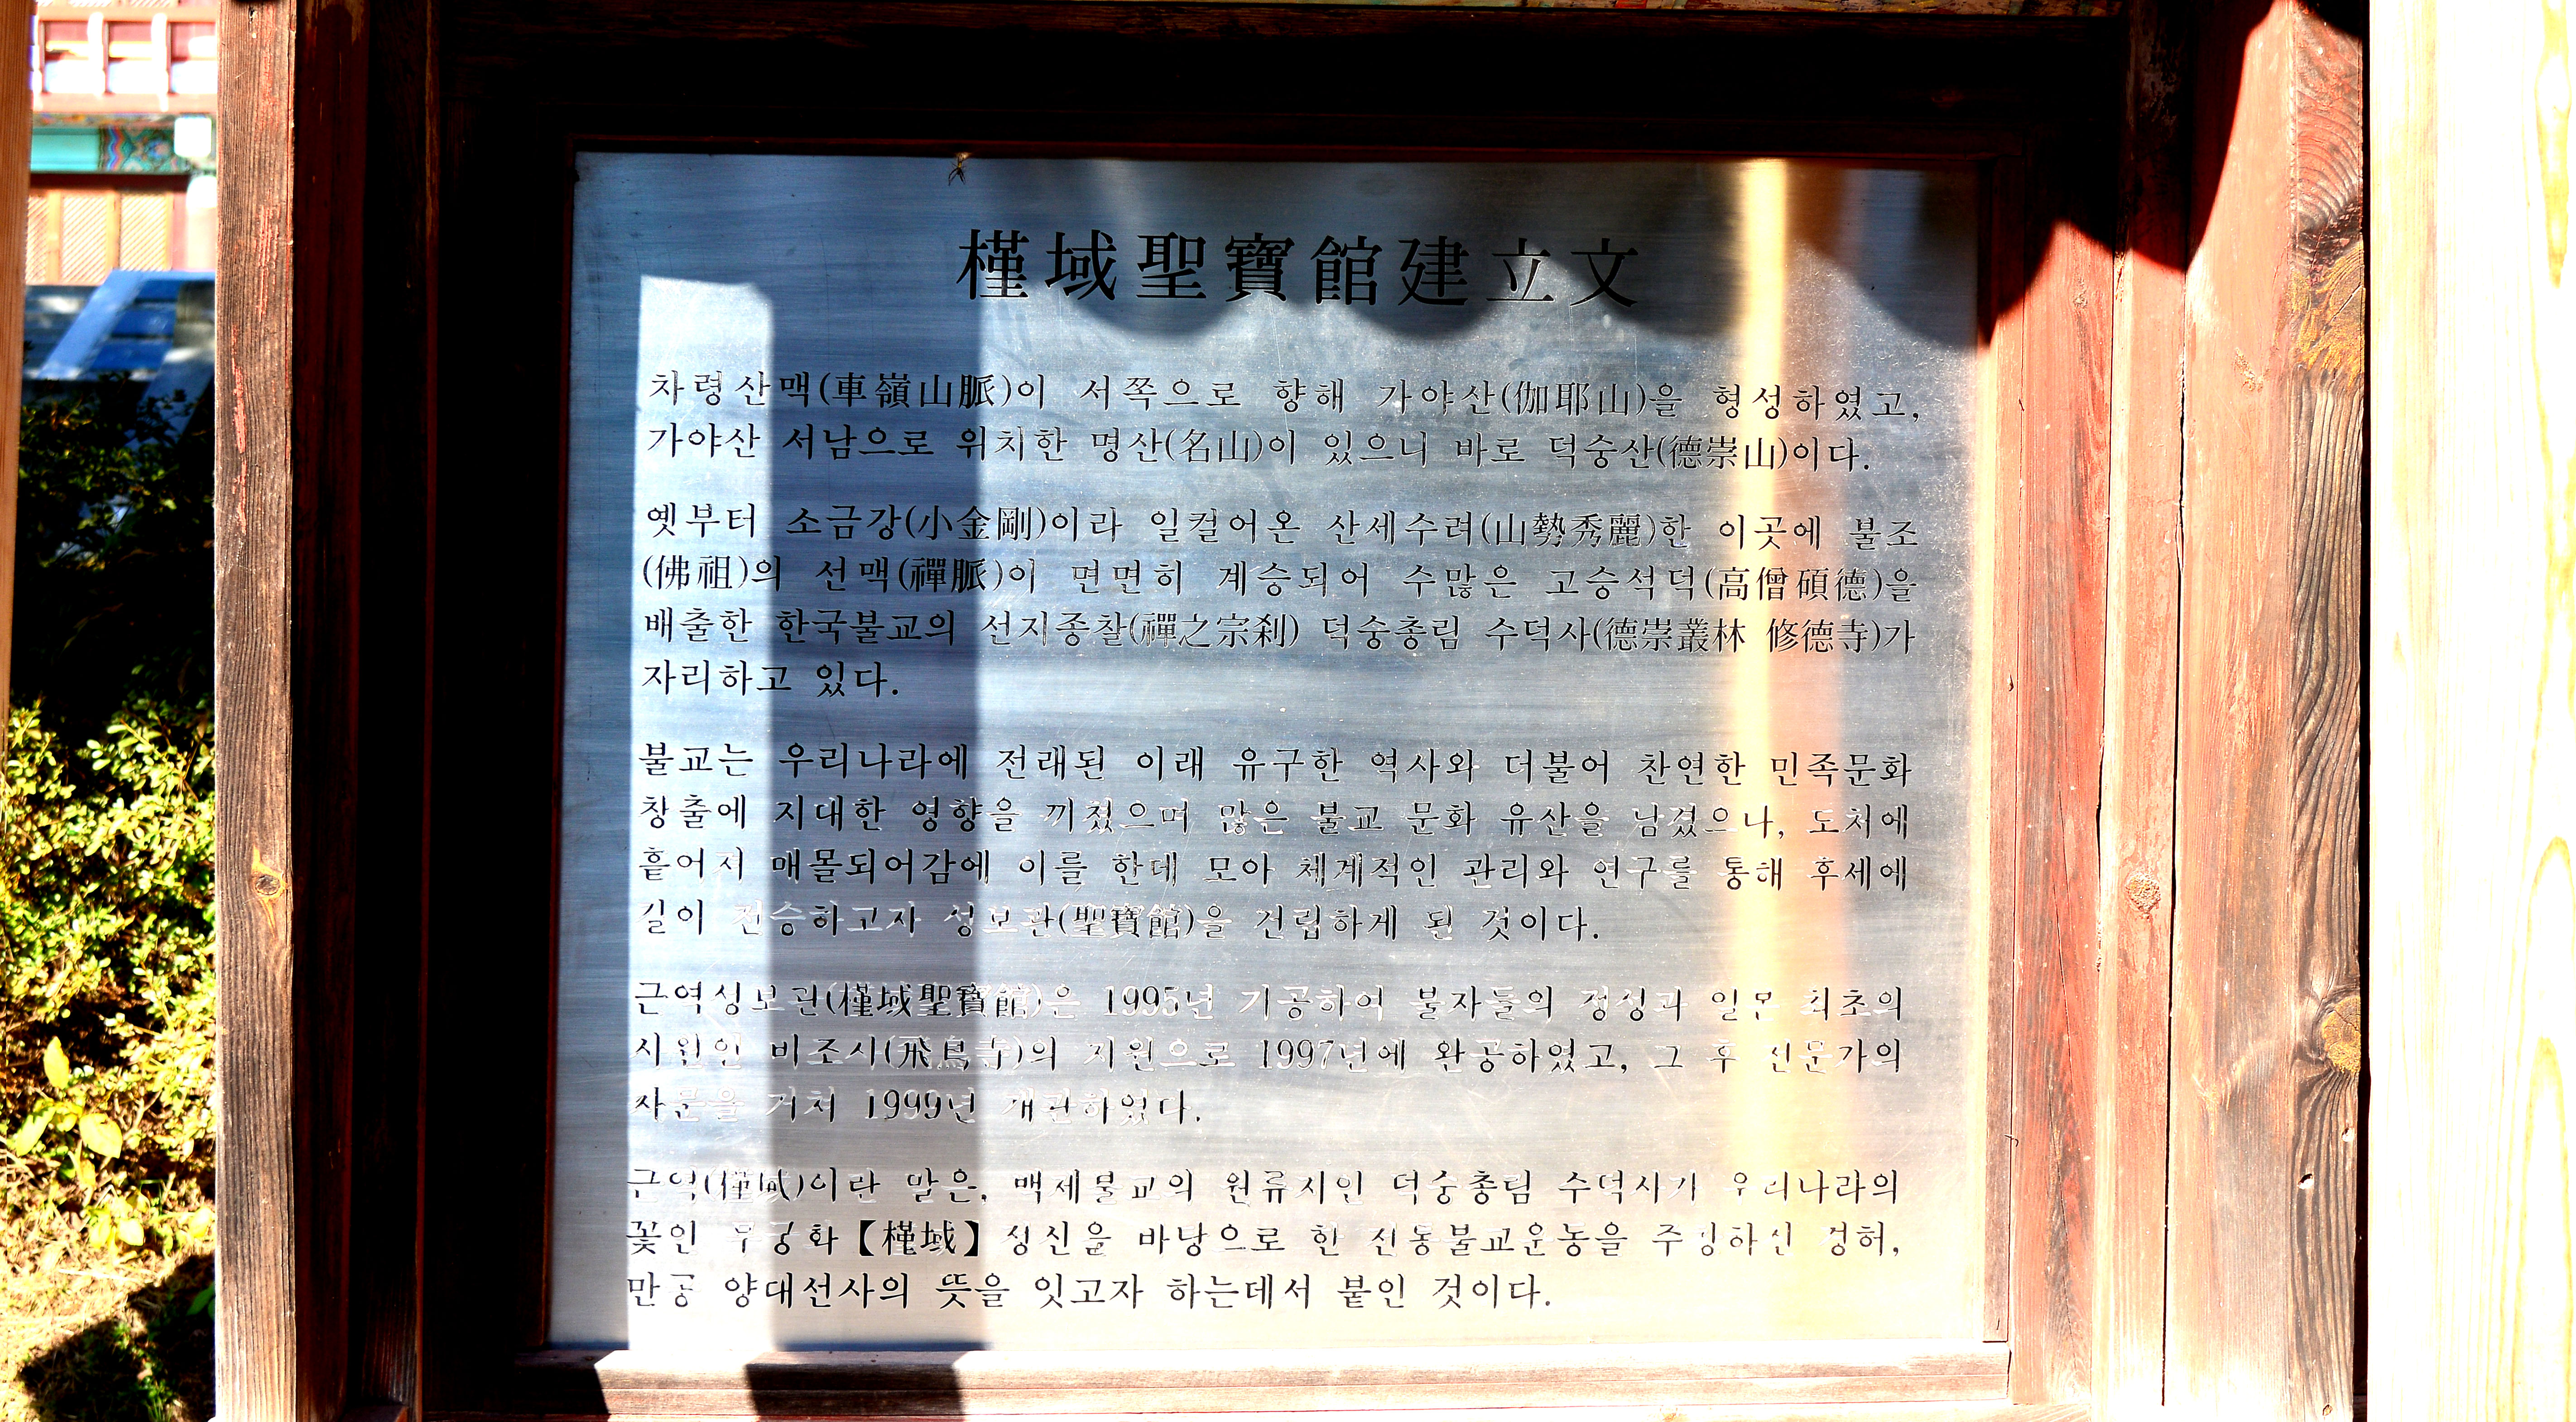 槿域聖寶館建立文
차령산맥(車嶺山脈)이 서쪽으로 향해 가야산(伽耶山)을 형성하였고,
가야산 서남으로 위치한 명산(名山)이 있으니 바로 덕숭산(德崇山)이다.
옛부터 소금강(小金剛)이라 일컬어온 산세수려(山勢秀麗)한 이곳에 불조
(佛祖)의 선맥(禪脈)이 면면히 계승되어 수많은 고승석덕(高僧碩德)을
배출한 한국불교의 선지종찰(禪之宗刹) 덕숭총림 수덕사(德崇叢林 修德寺)가
자리하고 있다.
불교는 우리나라에 전래된 이래 유구한 역사와 더불어 찬연한 민족문화
창출에 지대한 영향을 끼쳤으며 많은 불교 문화 유산을 남겼으나, 도처에
흩어지 매몰되어감에 이를 한데 모아 체계적인 관리와 연구를 통해 후세에
길이 전승하고자 성보관(聖寶館)을 건립하게 된 것이다.
근역성보관(槿域聖寶館)은 1995년 기공하여 불자들의 정성과 일본 최초의
사원인 비조사(飛鳥寺)의 지원으로 1997년에 완공하였고, 그 후 전문가의
자문을 거쳐 1999년 개관하였다.
근역(槿域)이란 말은, 백제불교의 원류지인 덕숭총림 수덕사가 우리나라의
꽃인 무궁화【槿域】 정신을 바탕으로 한 선농불교운동을 주창하신 경허,
만공 양대선사의 뜻을 잇고자 하는데서 붙인 것이다.